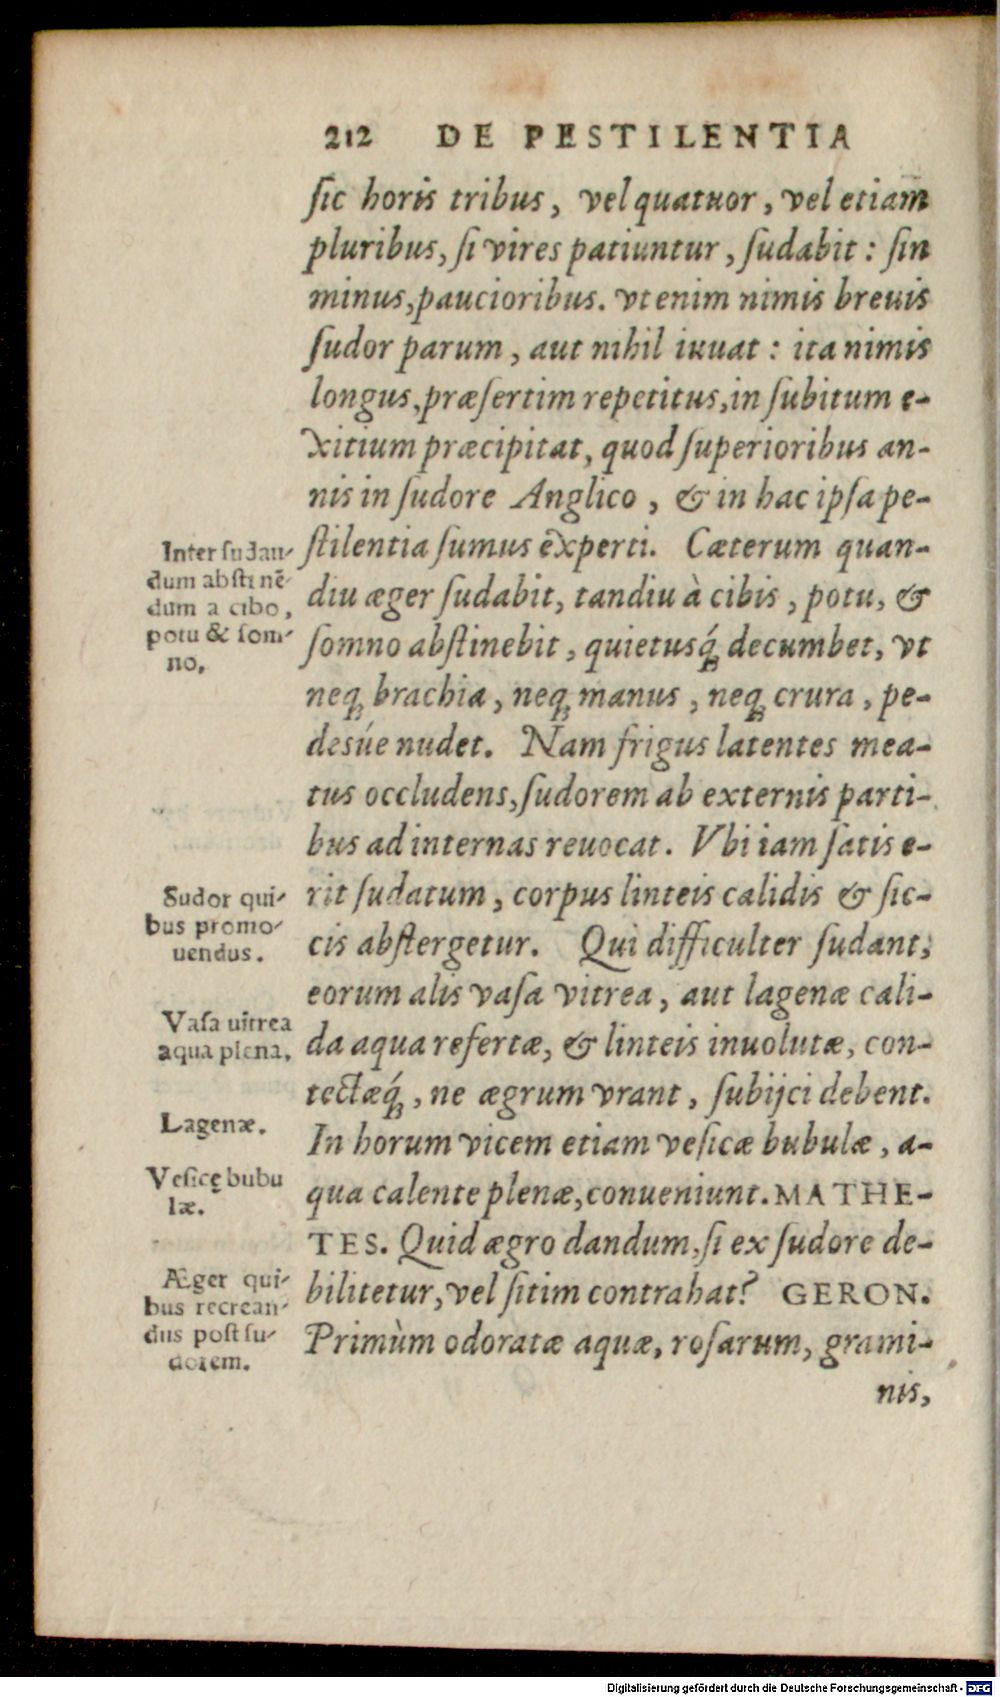 212 DE PESTILENTIA
ſic horis tribus, vel quatuor, vel etiam
pluribus, ſi vires patiuntur, ſudabit: ſin
minus, paucioribus. vt enim nimis breuis
ſudor parum, aut nihil iuuat: ita nimis
longus, præſertim repetitus, in ſubitum e-
xitium præcipitat, quod ſuperioribus an-
nis in ſudore Anglico, & in hac ipſa pe-
ſtilentia ſumus experti. Cæterum quan-
diu æger ſudabit, tandiu à cibis, potu, &
ſomno abſtinebit, quietusq́ꝫ decumbet, vt
neqꝫ brachia, neqꝫ manus, neqꝫ crura, pe-
desúe nudet. Nam frigus latentes mea-
tus occludens, ſudorem ab externis parti-
bus ad internas reuocat. Vbi iam ſatis e-
rit ſudatum, corpus linteis calidis & ſic-
cis abſtergetur. Qui difficulter ſudant,
eorum alis vaſa vitrea, aut lagenæ cali-
da aqua refertæ, & linteis inuolutæ, con-
tectæq́ꝫ, ne ægrum vrant, ſubijci debent.
In horum vicem etiam veſicæ bubulæ, a-
qua calente plenæ, conueniunt. MATHE-
TES. Quid ægro dandum, ſi ex ſudore de-
bilitetur, vel ſitim contrahat? GERON.
Primùm odoratæ aquæ, roſarum, grami-
nis,
Inter ſudan-
dum abſtinẽ-
dum a cibo,
potu & ſom-
no.
Sudor qui-
bus promo-
uendus.
Vaſa uitrea
aqua plena.
Lagenæ.
Veſicę bubu
læ.
Æger qui-
bus recrean-
dus poſt ſu-
dorem.
Digitalisierung gefördert durch die Deutsche Forschungsgemeinschaft - DFG